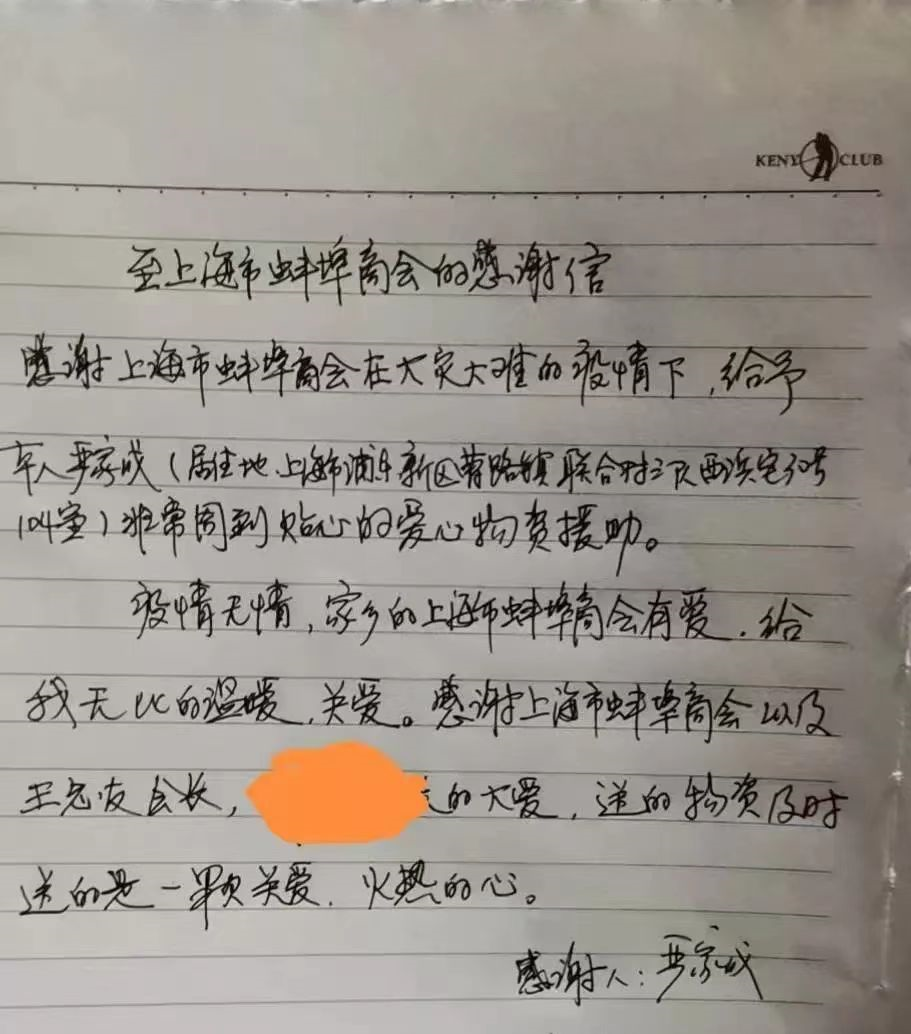 KENY CLUB
至上海市蚌埠商会的感谢信
感谢上海市蚌埠商会在大灾大难的疫情下,给予
本人严家成(居住地上海市浦东新区曹路镇联合村三队西浜宅30号
104室)非常周到贴心的爱心物资援助。
疫情无情,家乡的上海市蚌埠商会有爱.给
我无比的温暖.关爱。感谢上海市蚌埠商会以及
王友会长, 的大爱,送的物资及时
送的是一颗关爱.火热的心。
感谢人:严家成